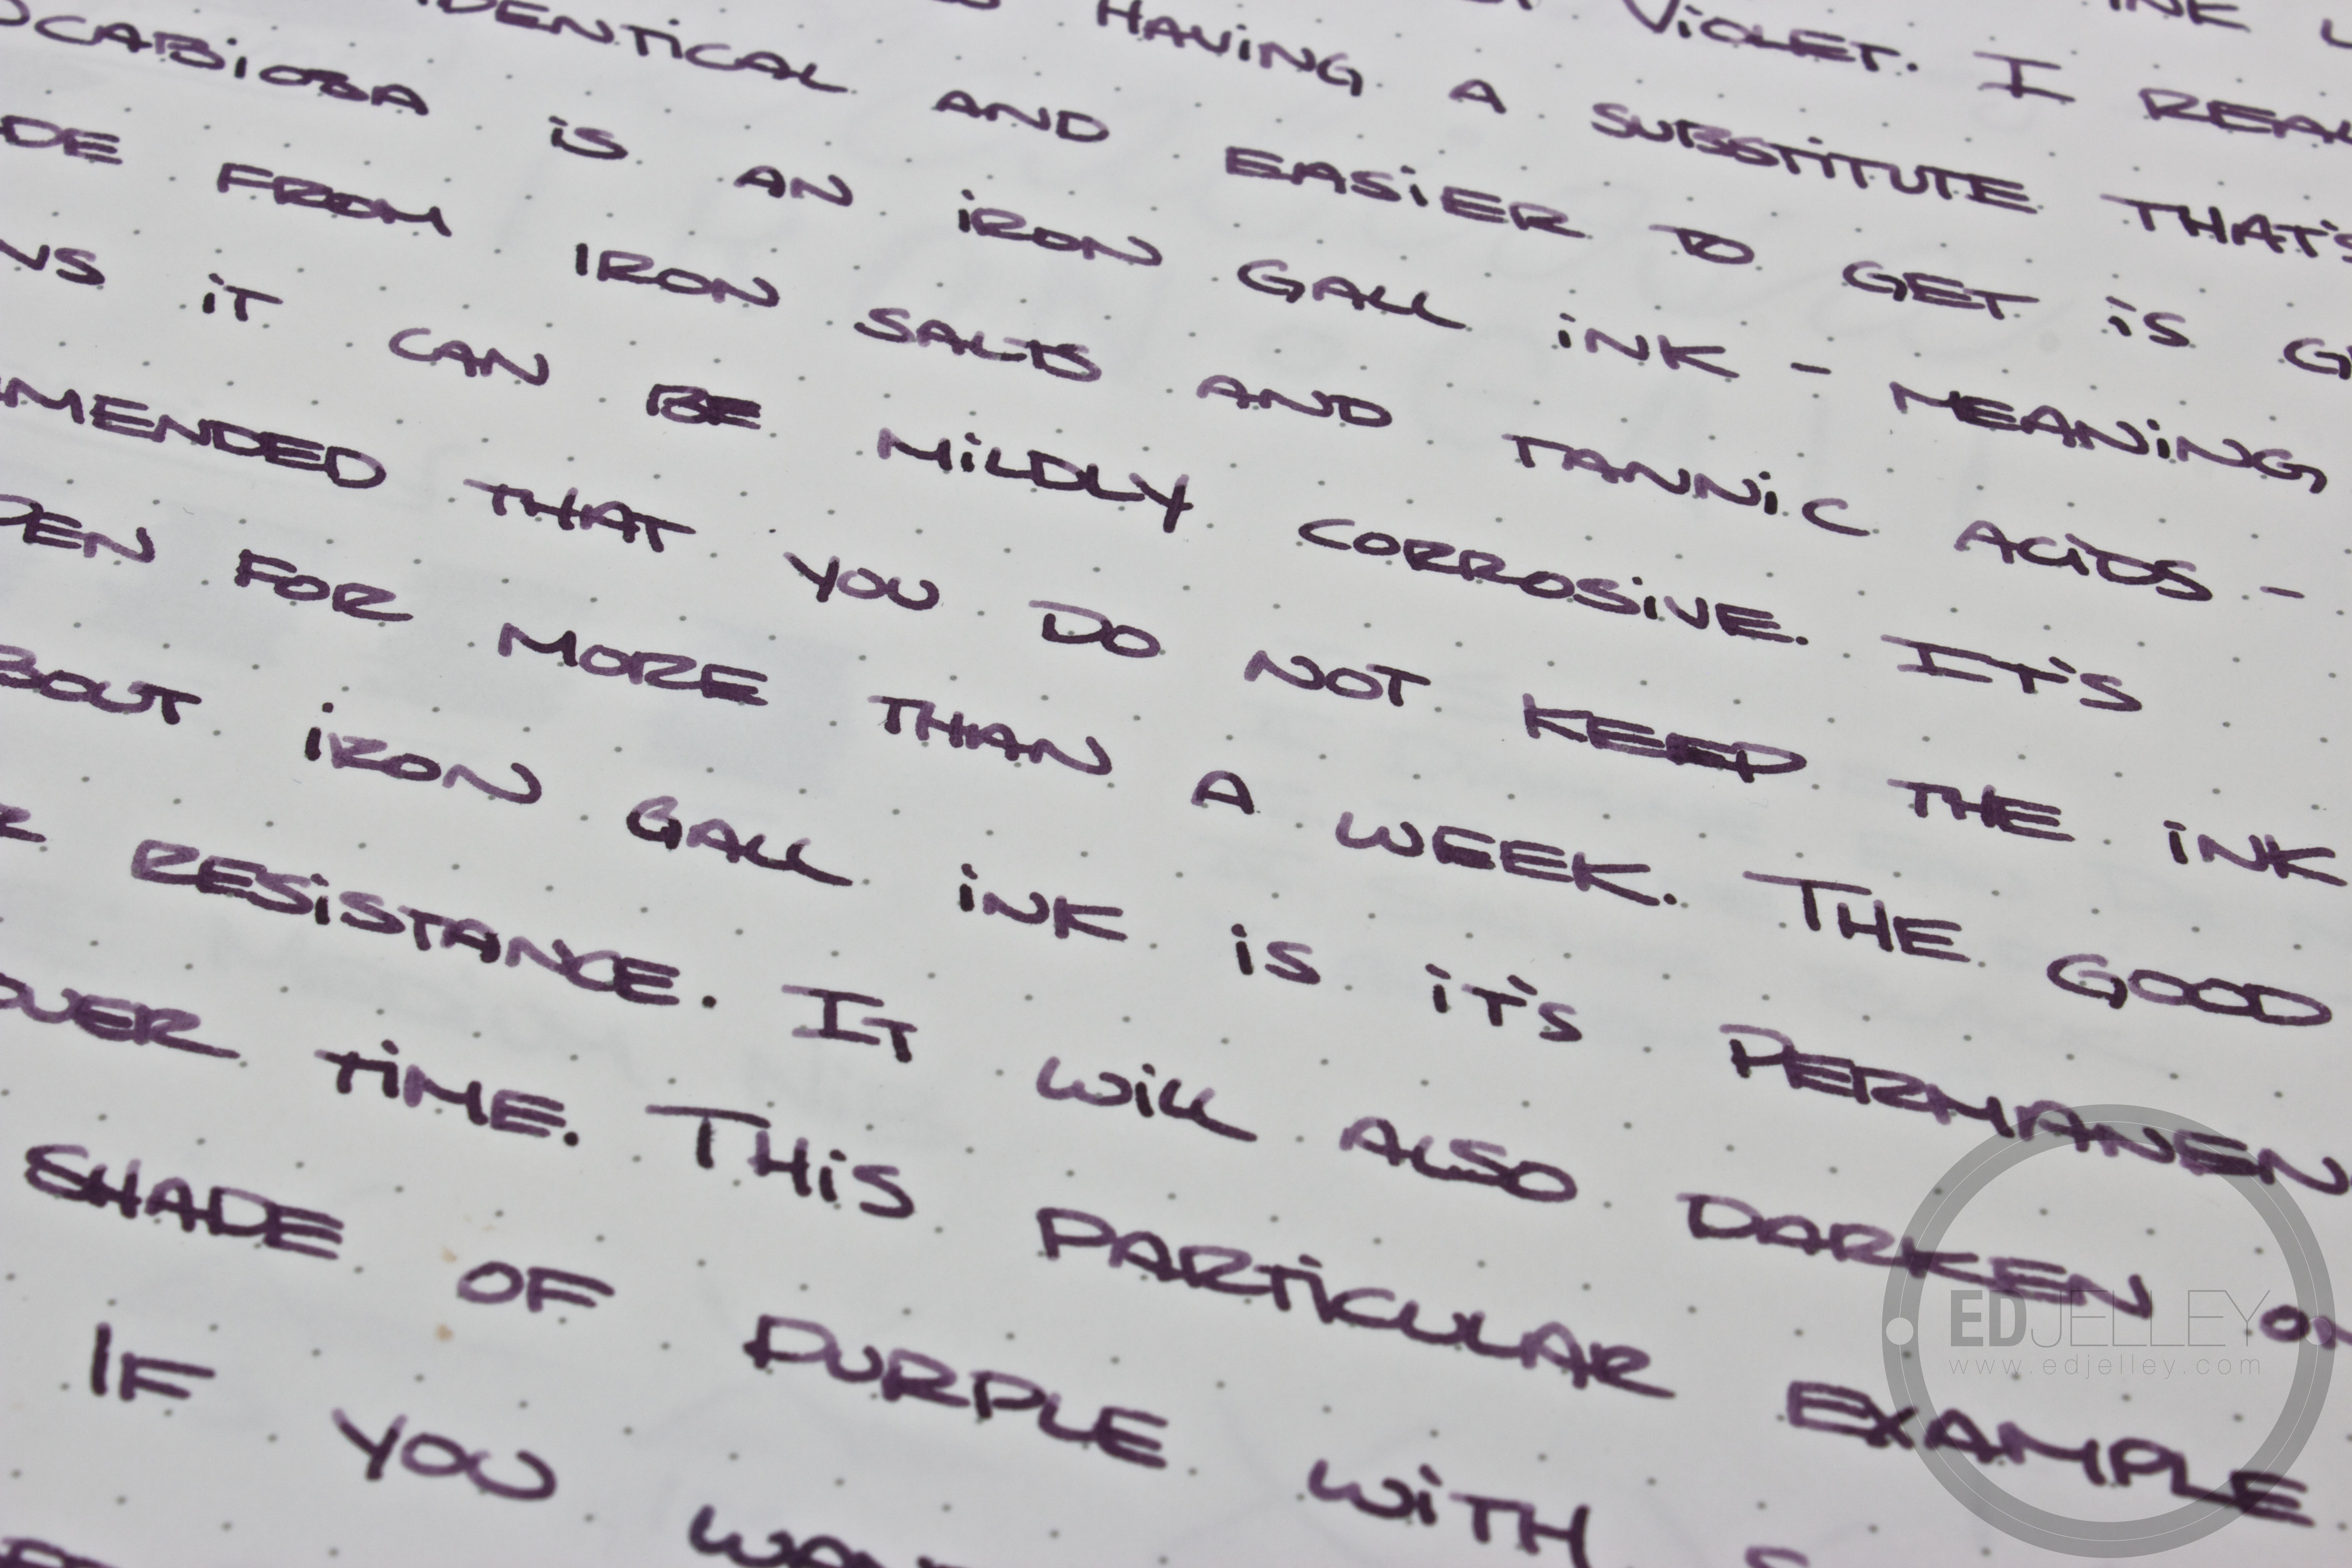 INK
VIOLET. I REAL
HAVING A SUBSTITUTE THAT'S
IDENTICAL AND EASIER TO GET IS G
SCABIOSA IS AN IRON GALL INK - MEANING
DE FROM IRON SALTS AND TANNIC ACIDS -
NS IT CAN BE MILDLY CORROSIVE. IT'S
MMENDED THAT YOU DO NOT KEEP THE INK
PEN FOR MORE THAN A WEEK. THE GOOD
BOUT IRON GALL INK IS IT'S PERMANEN
R RESISTANCE. IT WILL ALSO DARKEN ON
OVER TIME. THIS PARTICULAR EXAMPLE
SHADE OF PURPLE WITH S
IF YOU WAN
EDJELLEY
www.edjelley.com